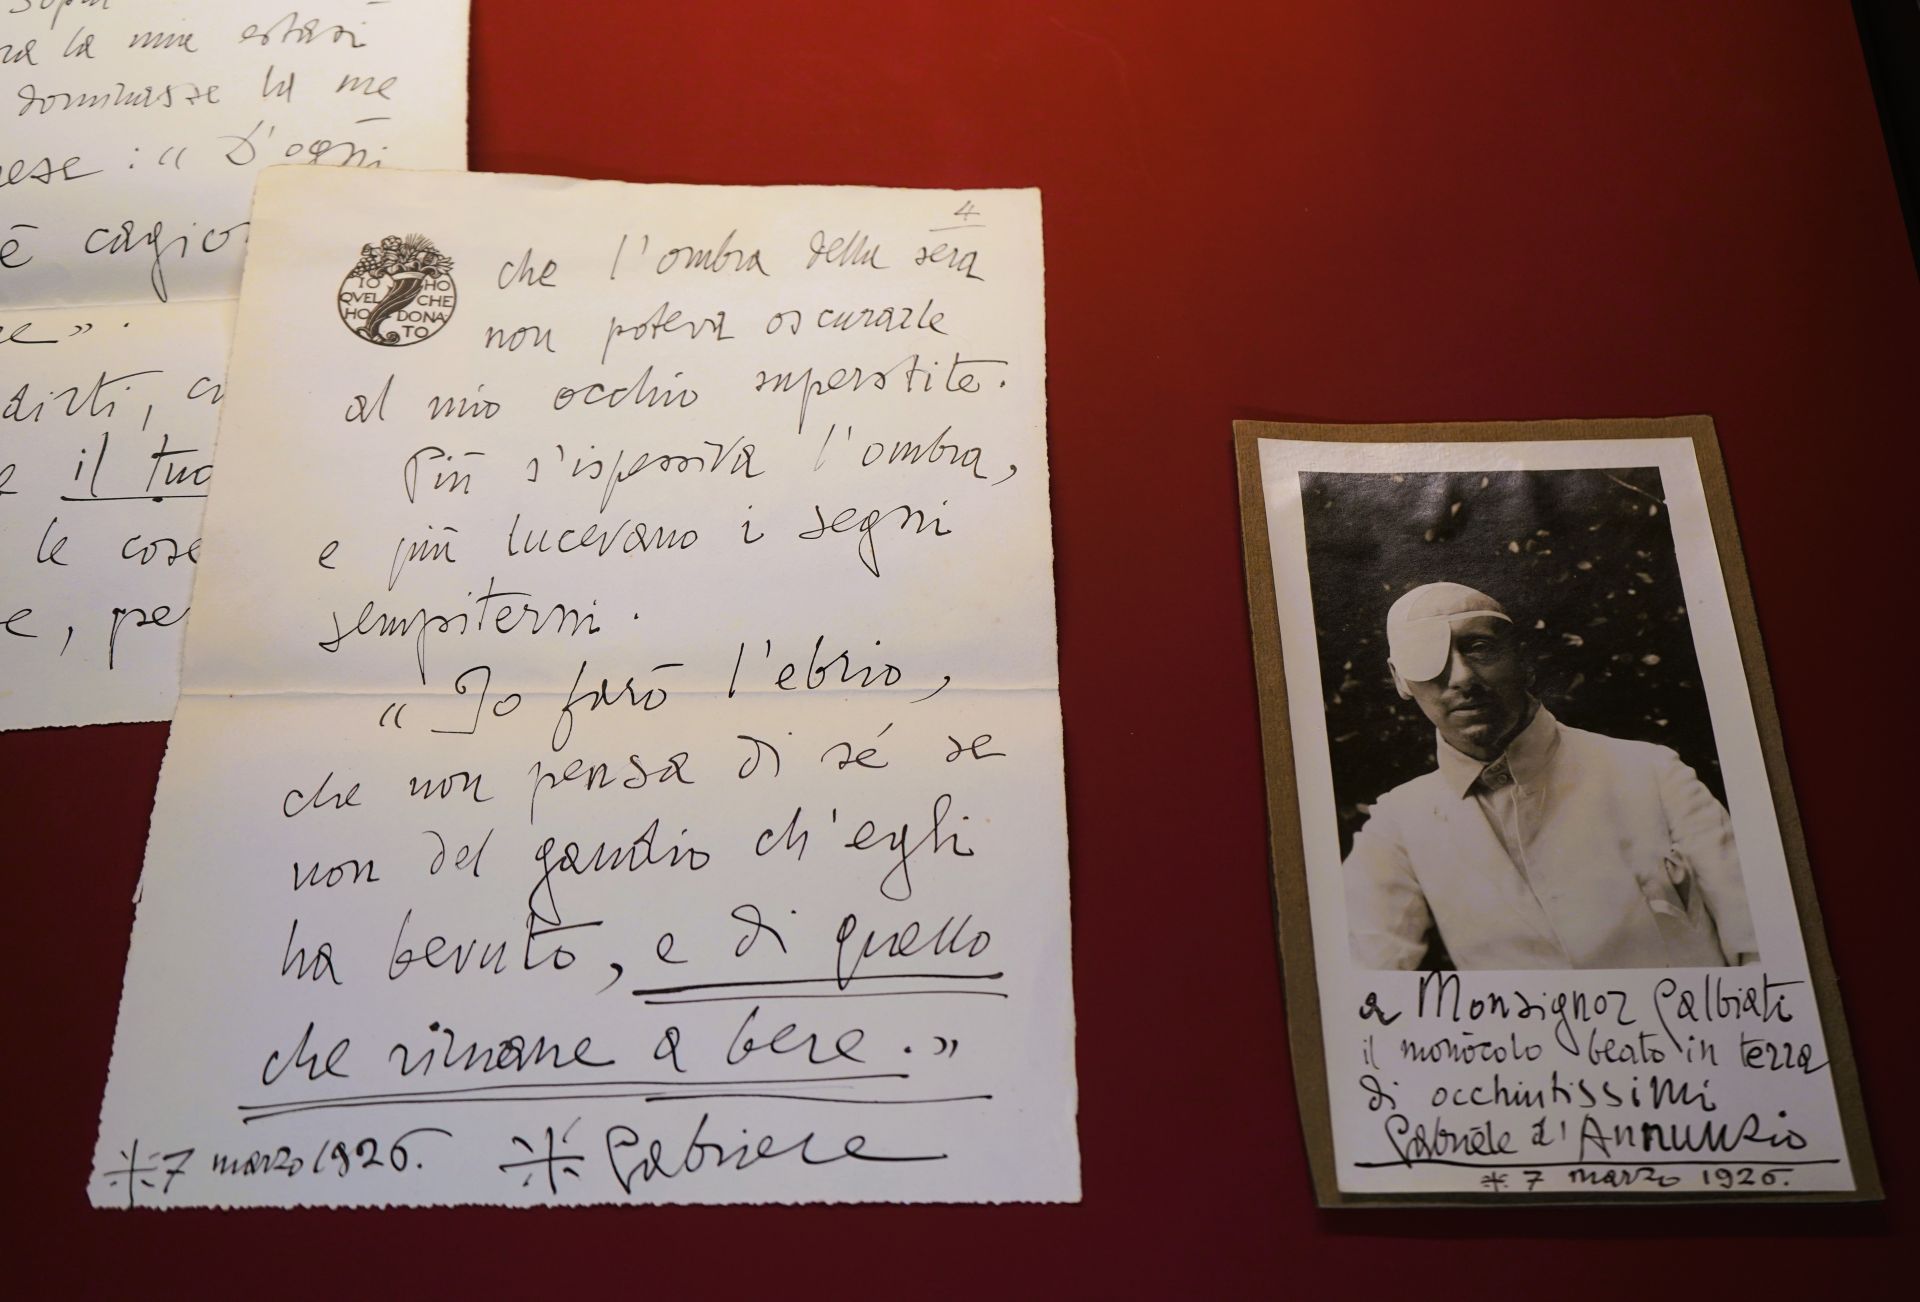 ra la mia estasi
dominasse la me
ese : « D'ogni
è cagio
e» .
dirti, c
il tuo
le cose
e, pe
4
IO HO
QVEL CHE
HO DONA
TO
che l'ombra della sera
non poteva oscurarle
al mio occhio superstite.
Più s'ispessiva l'ombra,
e più lucevano i segni
sempiterni.
« Io farò l'ebrio,
che non pensa di sé se
non del gaudio ch'egli
ha bevuto, e di quello
che rimane a bere.»
7 marzo 1926. Gabriele
a Monsignor Galbiati
il monòcolo beato in terra
di occhiutissimi
Gabriele d'Annunzio
7 marzo 1926.